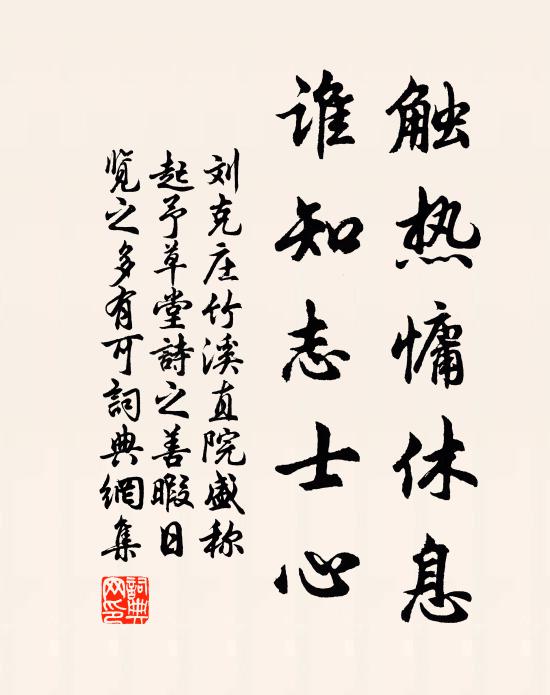 触热慵休息
谁知志士心
刘克庄竹溪直院盛称
起予草堂詩之善暇日
览之多有可詞典網集
詞典
网印